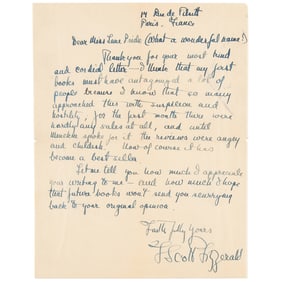 14 Rue de Tilsitt
Paris, France
Dear Miss (What a wonderful name!)
Thank you for your most kind
and cordial letter. I think that my first
books must have antagonized a lot of
people because I know that so many
approached this with suspicion and
hostility. For the first month there were
hardly any sales at all, and until
Mencken spoke for it the reviews were angry
and childish. Now of course it has
become a best seller.
Let me tell you how much I appreciate
your writing to me — and how much I hope
that future books won't send you scurrying
back to your original opinion.
Faithfully Yours
F Scott Fitzgerald